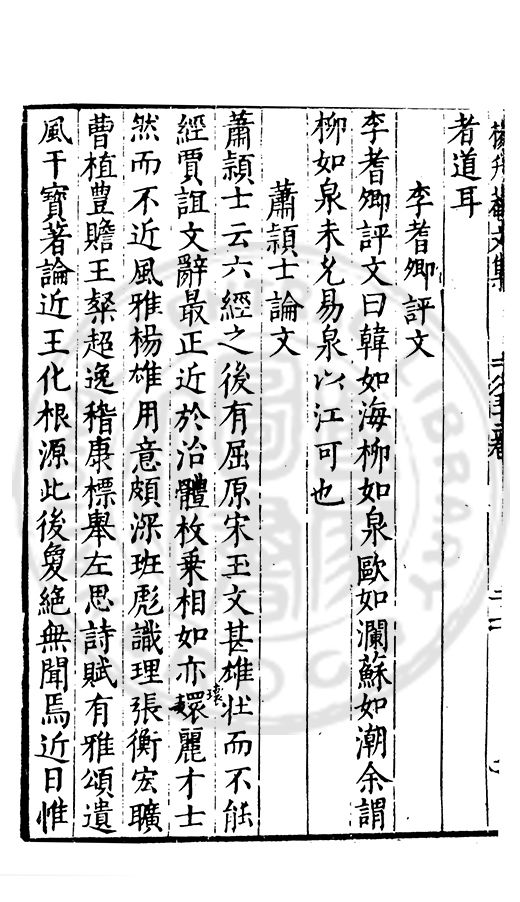 者道耳
李耆卿評文
李耆卿評文曰韓如海柳如泉歐如瀾蘇如潮余謂
柳如泉未允易泉以江可也
蕭穎士論文
蕭穎士云六經之後有屈原宋玉文甚雄壯而不能
經賈誼文辭最正近於治體枚乗相如亦環麗才士
瓌
然而不近風雅楊雄用意頗深班彪識理張衡宏曠
曹植豊贍王粲超逸稽康標舉左思詩賦有雅頌遺
風干寶著論近王化根源此後敻絶無聞焉近日惟